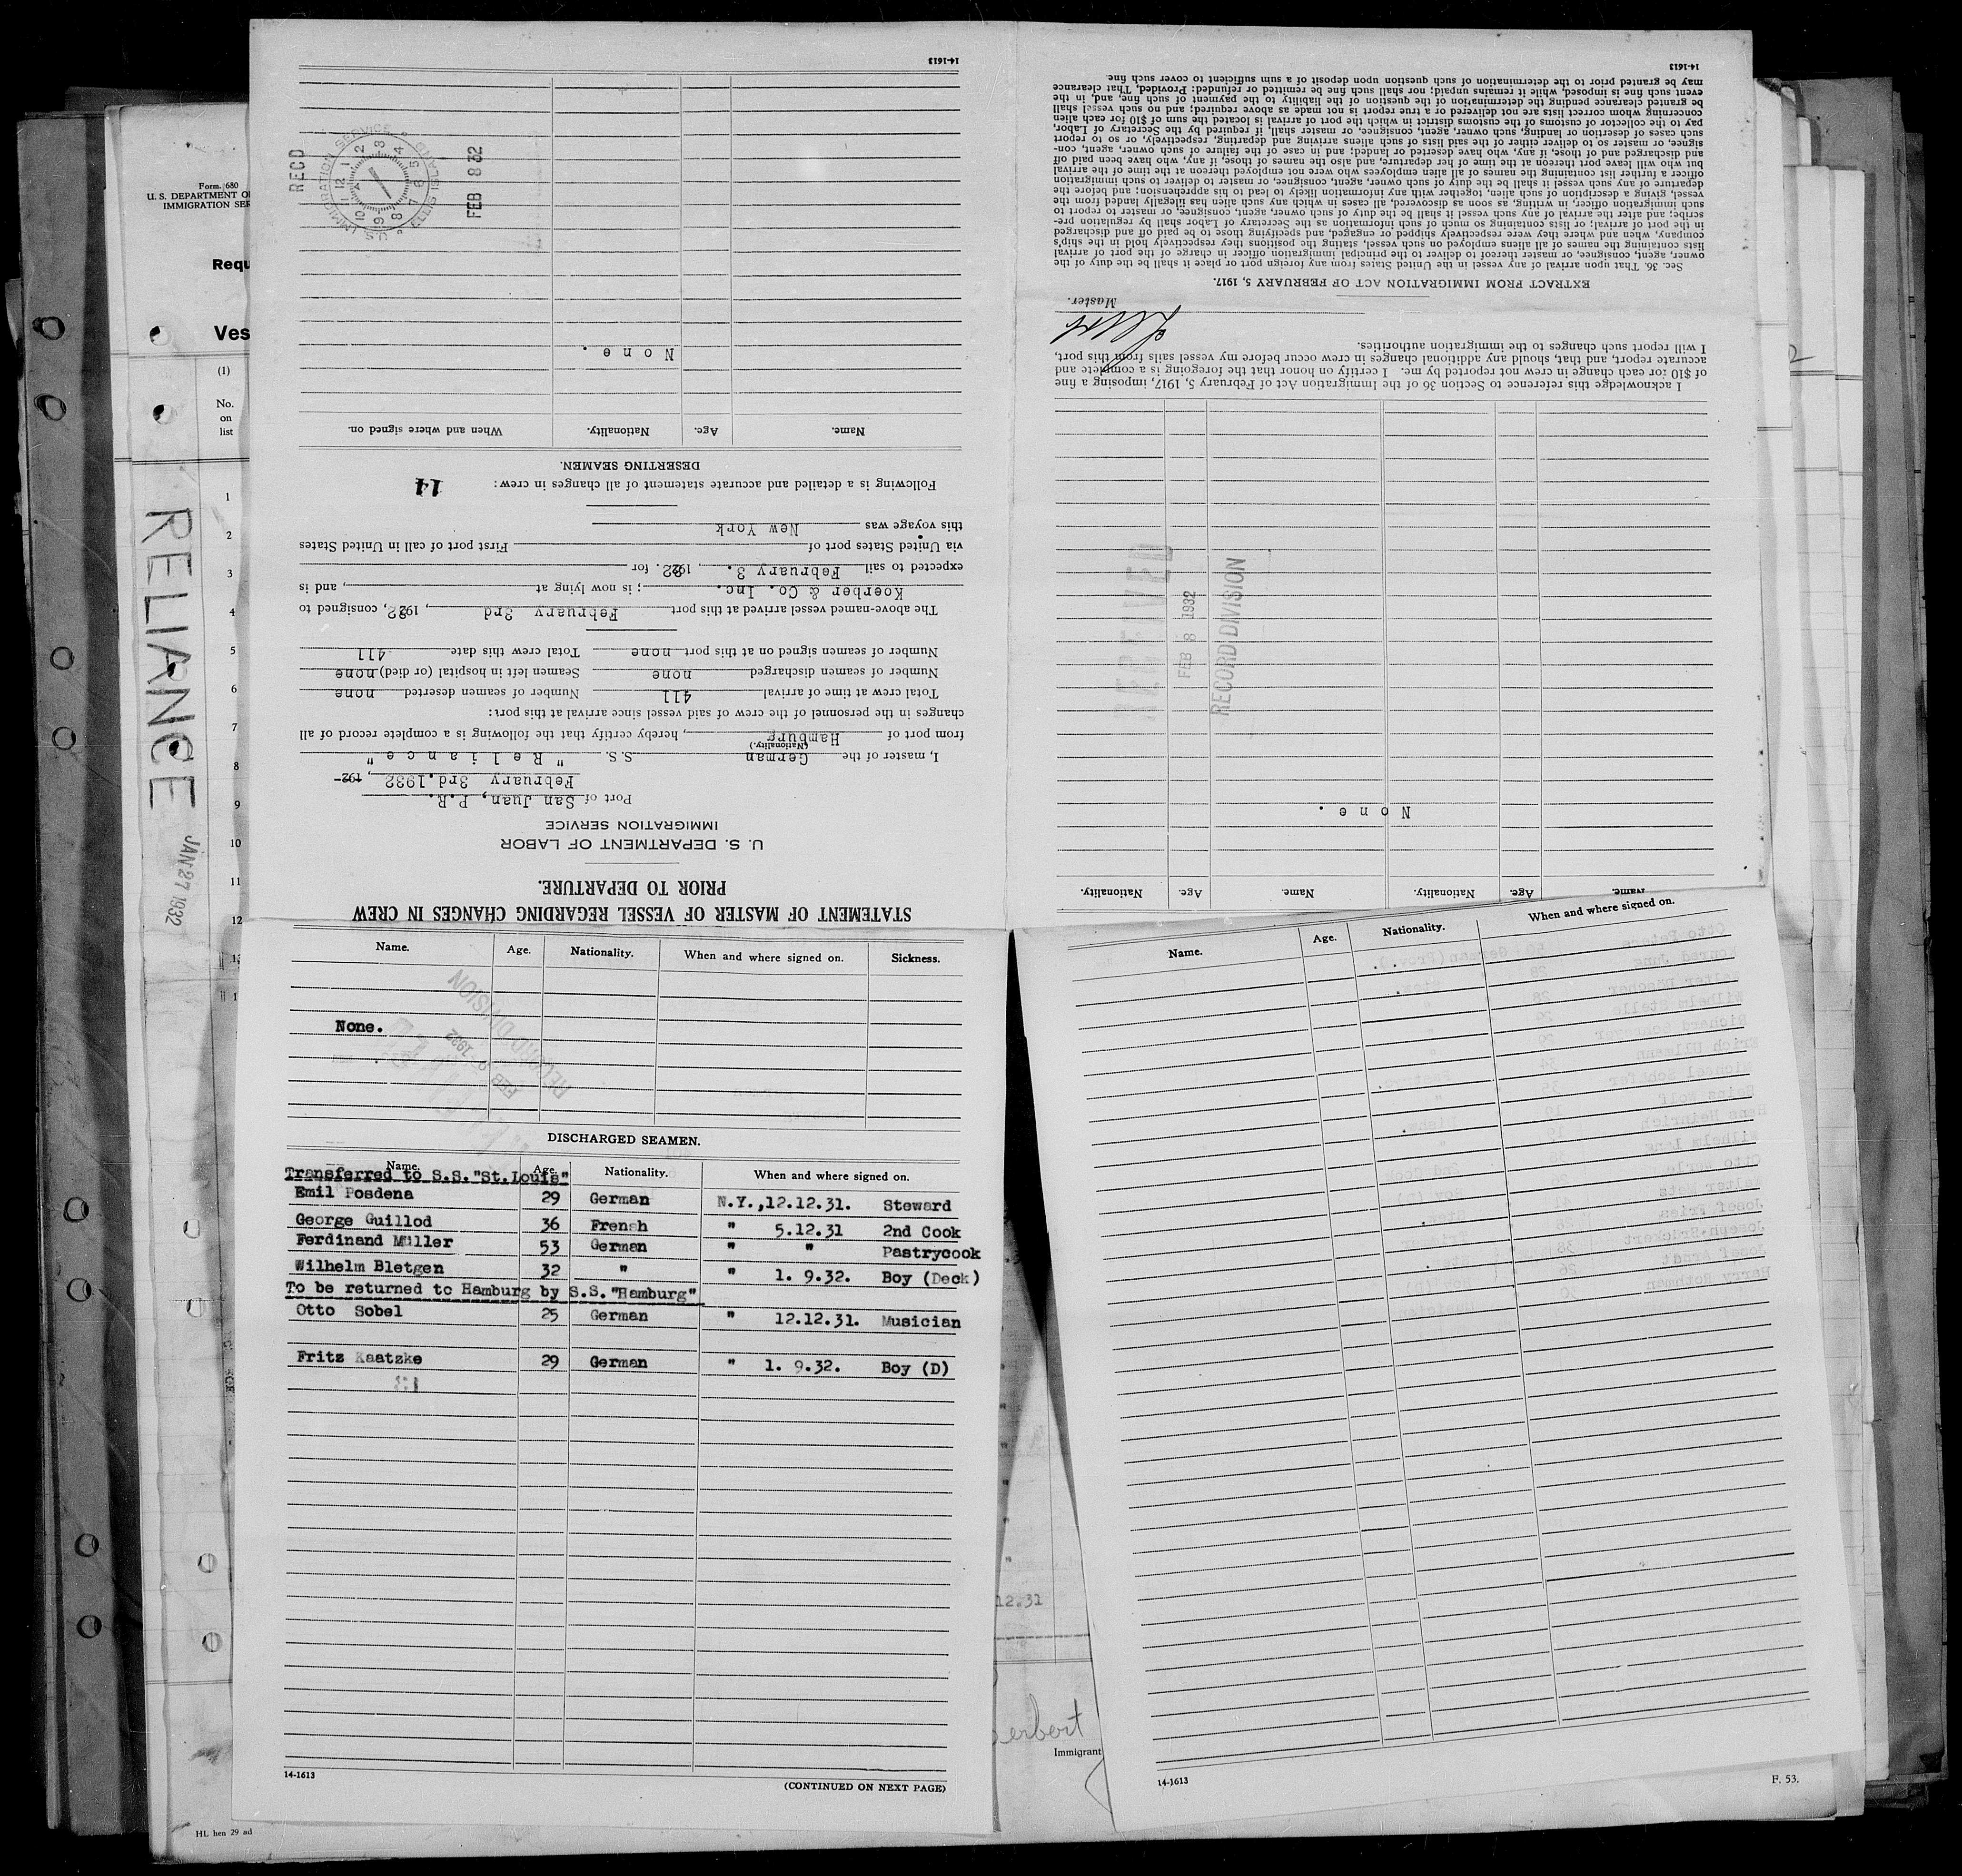 STATEMENT OF MASTER OF VESSEL REGARDING CHANGES IN CREW
PRIOR TO DEPARTURE.
U. S. DEPARTMENT OF LABOR
IMMIGRATION SERVICE
Port of San Juan, P.R.
February 3rd.1932, 192-
I, master of the German S.S. "Reliance"
(Nationality.)
from port of Hamburg, hereby certify that the following is a complete record of all
changes in the personnel of the crew of said vessel since arrival at this port:
Total crew at time of arrival 411 Number of seamen deserted none
Number of seamen discharged none Seamen left in hospital (or died) none
Number of seamen signed on at this port none Total crew this date 411
The above-named vessel arrived at this port February 3rd, 1932, consigned to
Koerber & Co. Inc. ; is now lying at , and is
expected to sail February 3. , 1932. for
via United States port of First port of call in United States
this voyage was New York
Following is a detailed and accurate statement of all changes in crew: 14
DESERTING SEAMEN.
Name. Age. Nationality. When and where signed on.
None.
RECD
U.S. IMMIGRATION SERVICE ELLIS ISLAND
FEB 8 32
14-1613
Name. Age. Nationality. Name. Age. Nationality.
None.
RECEIVED
FEB 8 1932
RECORD DIVISION
I acknowledge this reference to Section 36 of the Immigration Act of February 5, 1917, imposing a fine
of $10 for each change in crew not reported by me. I certify on honor that the foregoing is a complete and
accurate report, and that, should any additional changes in crew occur before my vessel sails from this port,
I will report such changes to the immigration authorities.
Master.
EXTRACT FROM IMMIGRATION ACT OF FEBRUARY 5, 1917.
Sec. 36. That upon arrival of any vessel in the United States from any foreign port or place it shall be the duty of the
owner, agent, consignee, or master thereof to deliver to the principal immigration officer in charge of the port of arrival
lists containing the names of all aliens employed on such vessel, stating the positions they respectively hold in the ship's
company, when and where they were respectively shipped or engaged, and specifying those to be paid off and discharged
in the port of arrival; or lists containing so much of such information as the Secretary of Labor shall by regulation pre-
scribe; and after the arrival of any such vessel it shall be the duty of such owner, agent, consignee, or master to report to
such immigration officer, in writing, as soon as discovered, all cases in which any such alien has illegally landed from the
vessel, giving a description of such alien, together with any information likely to lead to his apprehension; and before the
departure of any such vessel it shall be the duty of such owner, agent, consignee, or master to deliver to such immigration
officer a further list containing the names of all alien employees who were not employed thereon at the time of the arrival
but who will leave port thereon at the time of her departure, and also the names of those, if any, who have been paid off
and discharged and of those, if any, who have deserted or landed; and in case of the failure of such owner, agent, con-
signee, or master so to deliver either of the said lists of such aliens arriving and departing, respectively, or so to report
such cases of desertion or landing, such owner, agent, consignee, or master shall, if required by the Secretary of Labor,
pay to the collector of customs of the customs district in which the port of arrival is located the sum of $10 for each alien
concerning whom correct lists are not delivered or a true report is not made as above required; and no such vessel shall
be granted clearance pending the determination of the question of the liability to the payment of such fine, and, in the
event such fine is imposed, while it remains unpaid; nor shall such fine be remitted or refunded: Provided, That clearance
may be granted prior to the determination of such question upon deposit of a sum sufficient to cover such fine.
14-1613
Form 680
U. S. DEPARTMENT O
IMMIGRATION SER
Requ
Ves
(1)
No.
on
list
1
2
3
4
5
6
7
8
9
10
11
12
RELIANCE
JAN 27 1932
Name. Age. Nationality. When and where signed on. Sickness.
None.
RECORD DIVISION
DISCHARGED SEAMEN.
Name. Age. Nationality. When and where signed on.
Transferred to S.S."St.Louis"
Emil Posdena 29 German N.Y.,12.12.31. Steward
George Guillod 36 Frensh " 5.12.31 2nd Cook
Ferdinand Müller 53 German " " Pastrycook
Wilhelm Bletgen 32 " " 1. 9.32. Boy (Deck)
To be returned to Hamburg by S.S."Hamburg"
Otto Sobel 25 German " 12.12.31. Musician
Fritz Kaatzke 29 German " 1. 9.32. Boy (D)
14-1613
(CONTINUED ON NEXT PAGE)
HL hen 29 ad
Name. Age. Nationality. When and where signed on.
14-1613
F. 53.
12.31
Immigrant